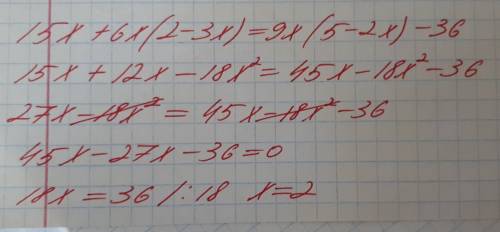 15x + 6x(2-3x) = 9x(5-2x) - 36
15x + 12x - 18x² = 45x - 18x² - 36
27x - 18x² = 45x - 18x² - 36
45x - 27x - 36 = 0
18x = 36 /:18 x = 2